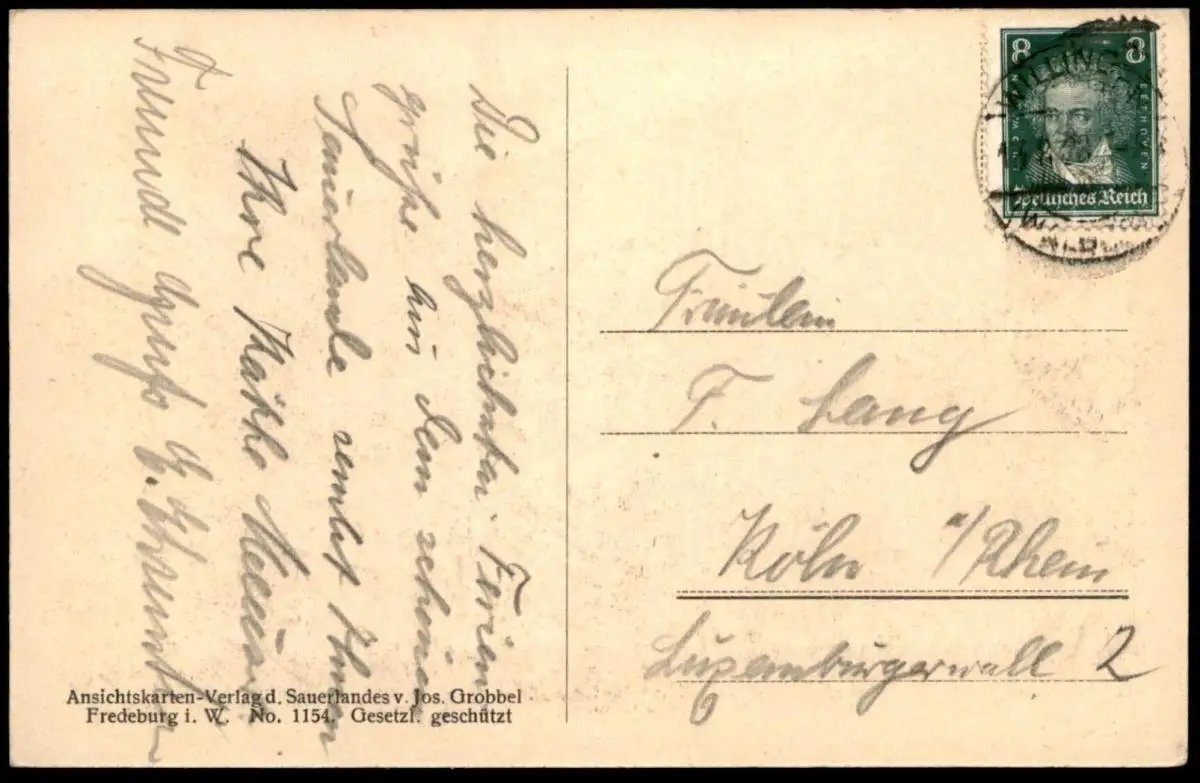 Die herzlichsten Ferien
grüße aus dem schönen
Sauerlande sendet Ihnen
Ihre Käthe
Freundl. Gruß
8 8
BEETHOVEN
Deutsches Reich
WILLINGEN
Fräulein
F. Lang
Köln a/Rhein
Luxemburgerwall 2
Ansichtskarten-Verlag d. Sauerlandes v. Jos. Grobbel
Fredeburg i. W. No. 1154. Gesetzl. geschützt